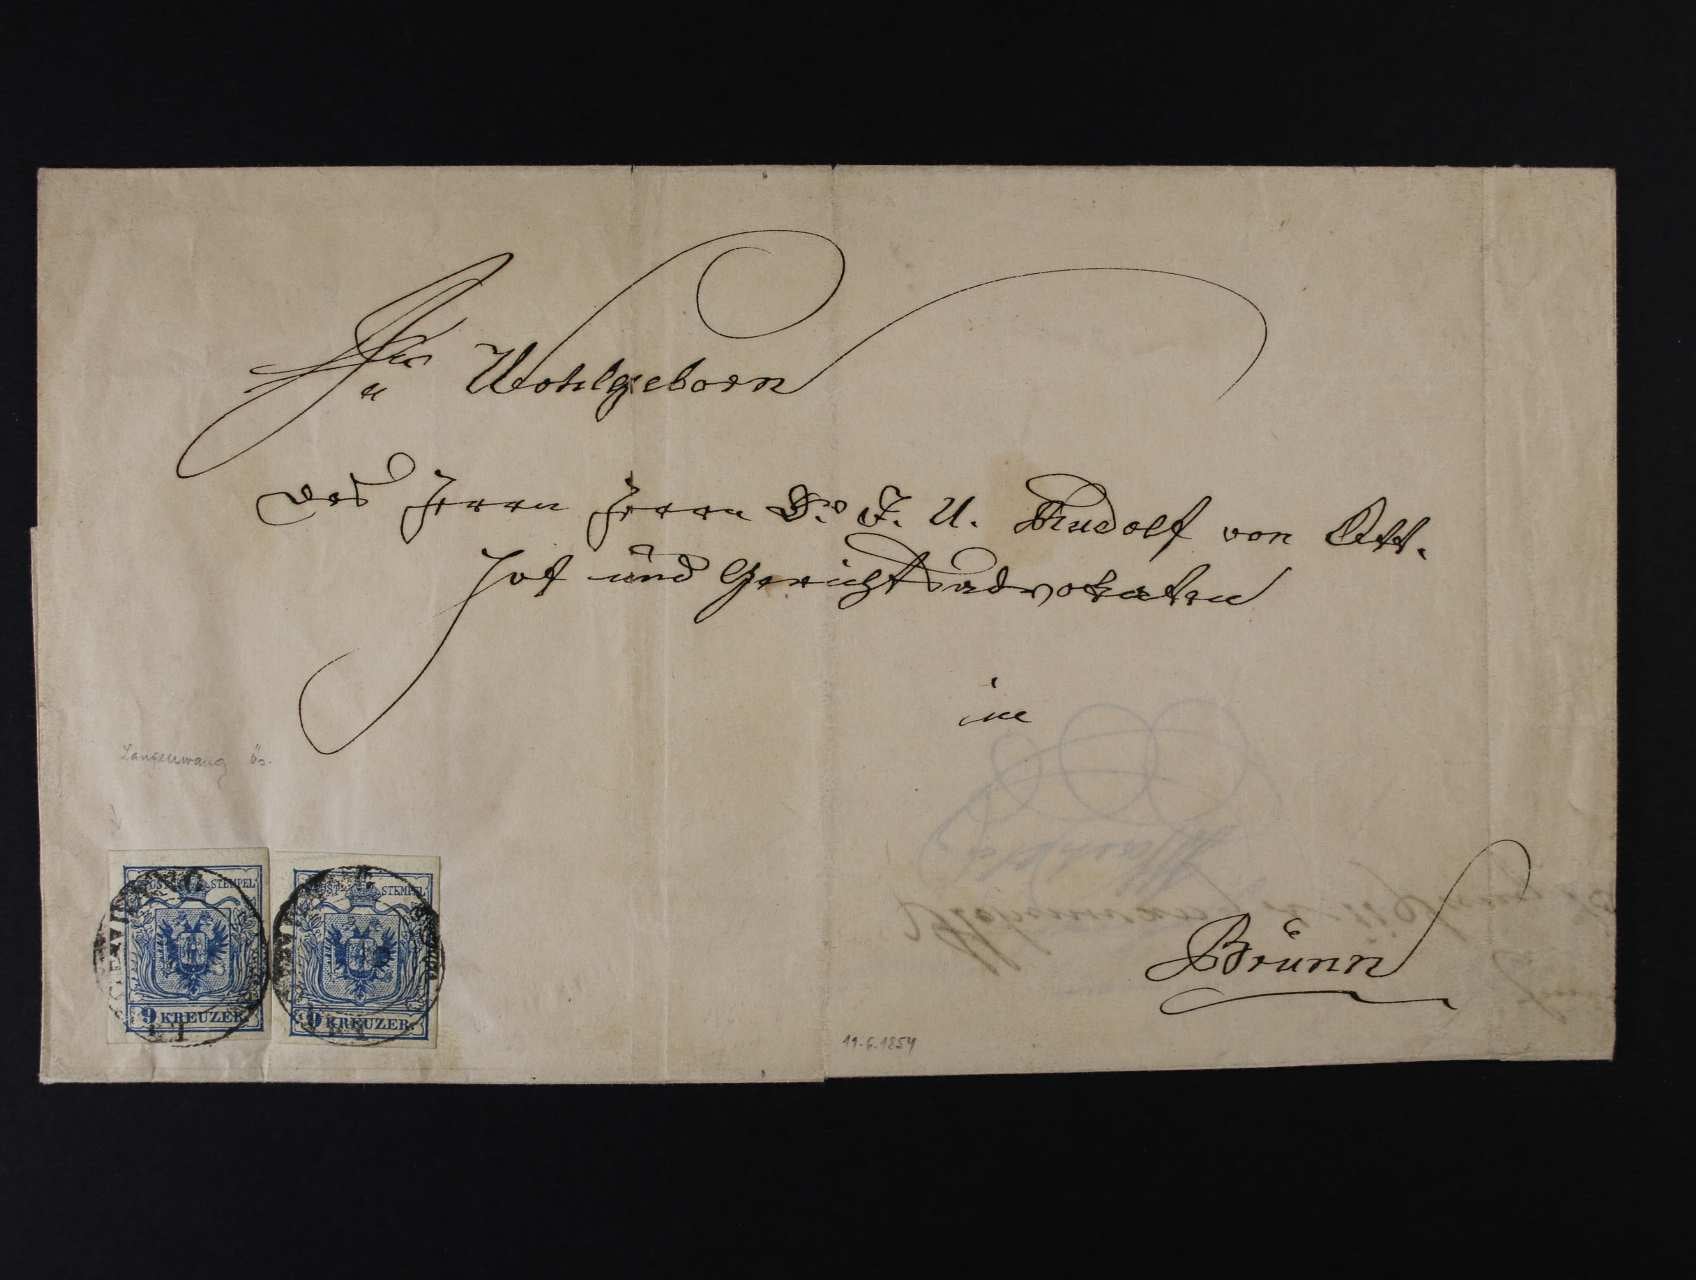 Sr Wohlgeborn
des Herrn Herrn Dr J. U. Rudolf von Ott.
Hof und Gerichtsadvokaten
in
Brünn
Langenwang ös.
KKPOST-STEMPEL
9 KREUZER.
KKPOST-STEMPEL
9 KREUZER.
11.6.1854